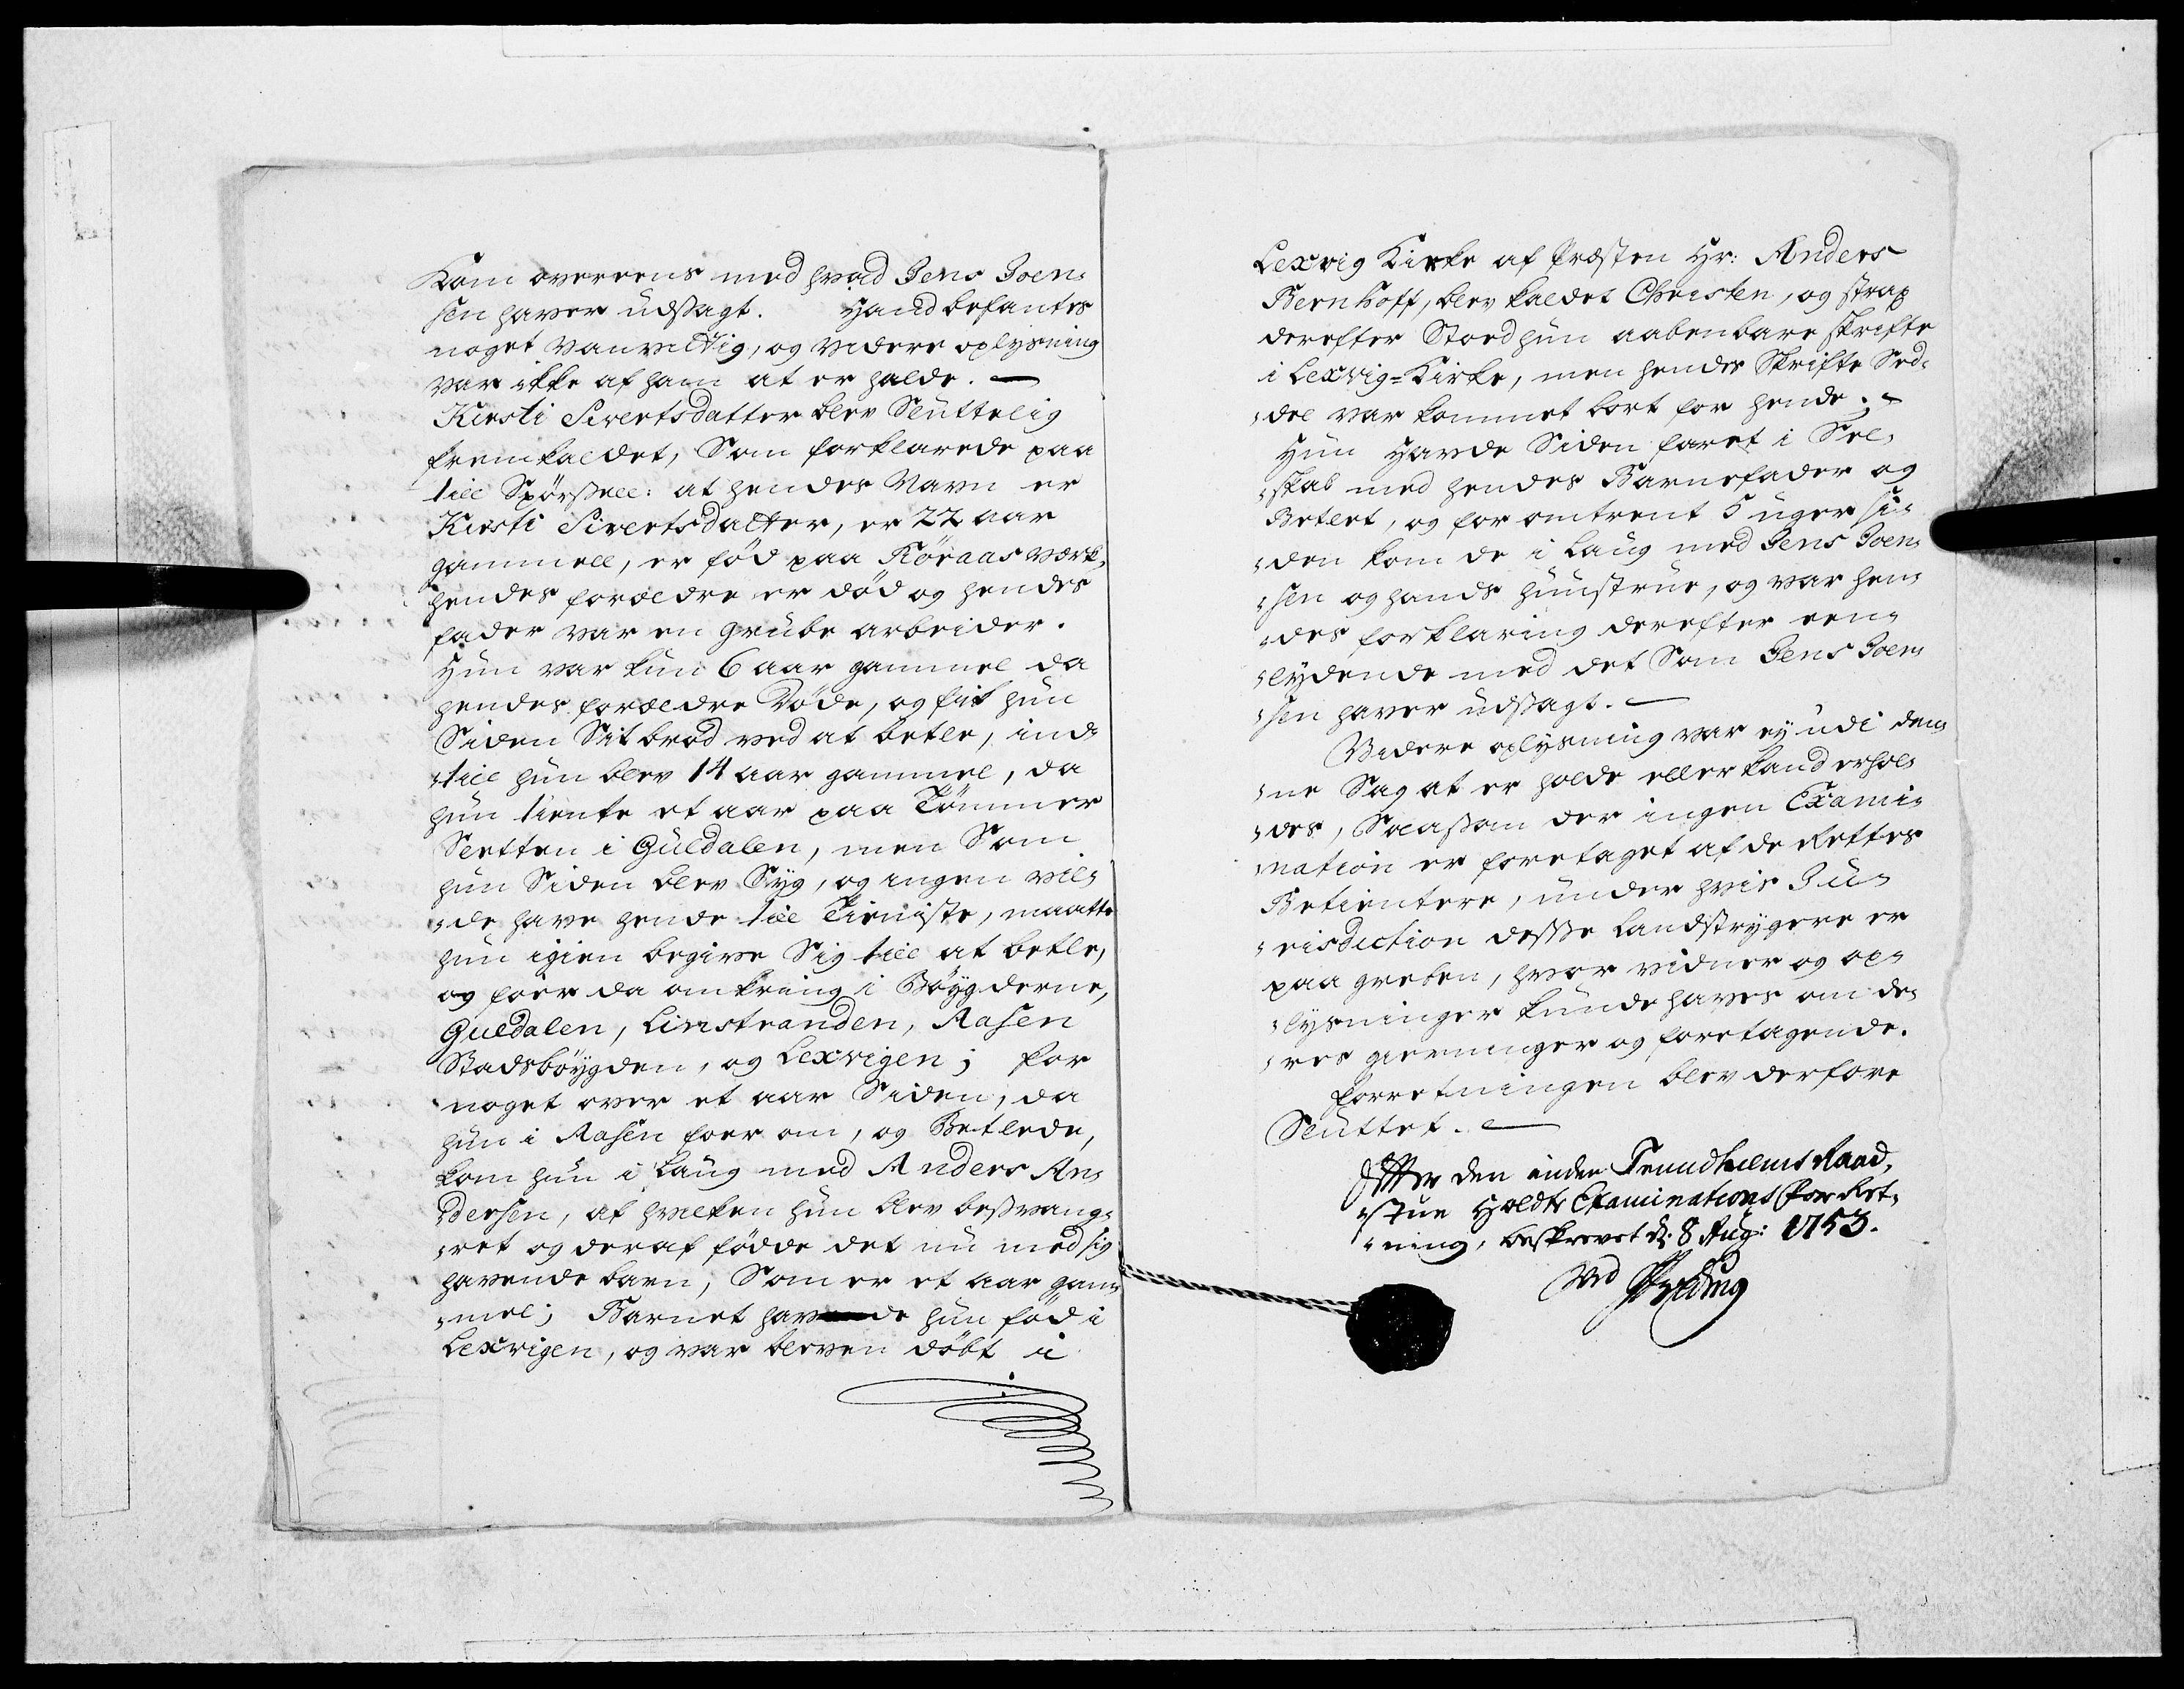 Kom overeens med hvad Jens Joen-
sen haver udsagt. Hand befantes
noget vanvittig, og videre oplysning
var ikke af ham at er holde. —
Kirsti Sivertsdatter blev Sluttelig
fremkaldet, Som forklarede paa
till Spørsell: at hendes Navn er
Kirsti Sivertsdatter, er 22 aar
gammell, er fød paa Röraas værk,
hendes forældre er død og hendes
fader var en grube arbeider.
Hun var kun 6 aar gammel da
hendes forældre døde, og fik hun
Siden Sit brød ved at betle, ind-
till hun blev 14 aar gammel, da
hun tiente et aar paa Tømmer
Sletten i Guldalen, men Som
hun Siden blev Syg, og ingen vil-
de have hende till Tieniste, maatte
hun igien begive Sig till at betle,
og foer da omkring i Böygderne,
Guldalen, Linstranden, Aasen
Stadsböygden, og Lexvigen; for
noget over et aar Siden, da
hun i Aasen foer om, og Betlede,
kom hun i Laug med Anders An-
dersen, af hvilken hun blev besvang-
ret og deraf fødde det nu med sig
havende barn, Som er et aar gam-
mel; Barnet havde hun fød i
Lexvigen, og var bleven döbt i
Lexvig Kirke af Præsten Hr: Anders
Bernhoff, blev kaldet Christen, og strax
derefter Stoed hun aabenbare skrifte
i Lexvig-Kirke, men hendes Skrifte Sed-
del var kommet bort for hende; —
Hun Havde Siden faret i Sel-
skab med hendes Barnefader og
Betlet, og for omtrent 5 uger si-
den kom de i Laug med Jens Joen-
sen og hands hunstrue, og var hen-
des forklaring derefter een-
lydende med det Som Jens Joen-
sen haver udsagt. —
Videre oplysning var ey udi den-
ne Sag at er holde eller kand erhol-
des, Saasom der ingen Exami-
nation er foretaget af de Rettes
Betientere, under hvis Ju-
risdiction desse Landstrygere er
paa greben, hvor vidner og op-
lysninger kunde haves om de-
res gierninger og foretagende.
forretningen blev derfore
Sluttet. —
Efter den inden Trundhiems Raad-
stue Holdte Examinations For Ret-
ning, beskrevet d: 8 Aug: 1753.
Ved